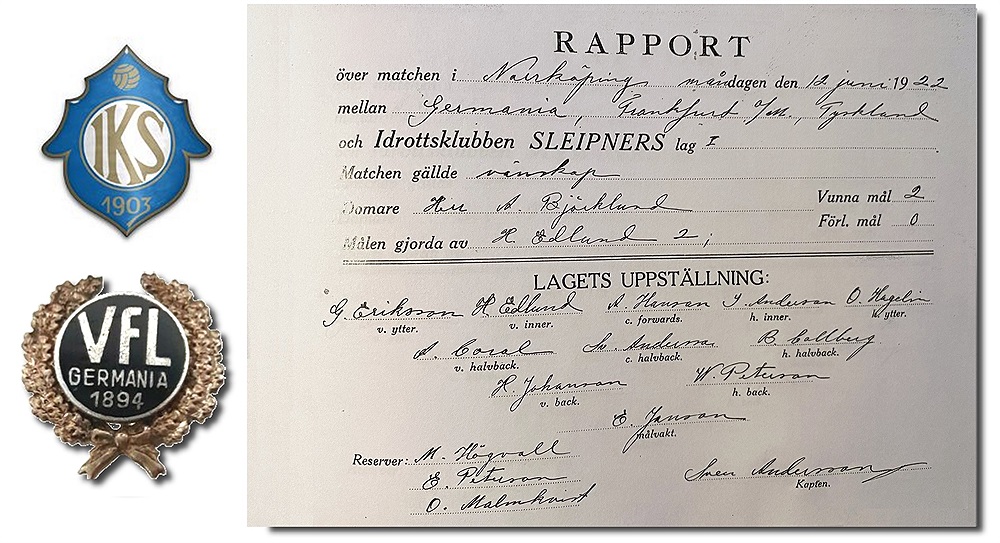 IKS
1903
VFL
GERMANIA
1894
RAPPORT
över matchen i Norrköping måndagen den 12 juni 1922
mellan Germania, Frankfurt a/M., Tyskland
och Idrottsklubben SLEIPNERS lag I
Matchen gällde vänskap
Domare Herr A. Björklund Vunna mål 2
Förl. mål 0
Målen gjorda av H. Edlund 2;
LAGETS UPPSTÄLLNING:
G. Eriksson H. Edlund A. Hanson Anderson O. Hagelin
v. ytter. v. inner. c. forwards. h. inner. h. ytter.
A. Sv. Anderson B. Collberg
v. halvback. c. halvback. h. halvback.
H. Johanson W. Peterson
v. back. h. back.
E. Janson
målvakt.
Reserver: M. Högvall
E. Peterson
O. Malmkvist
Sven Andersson
Kapten.